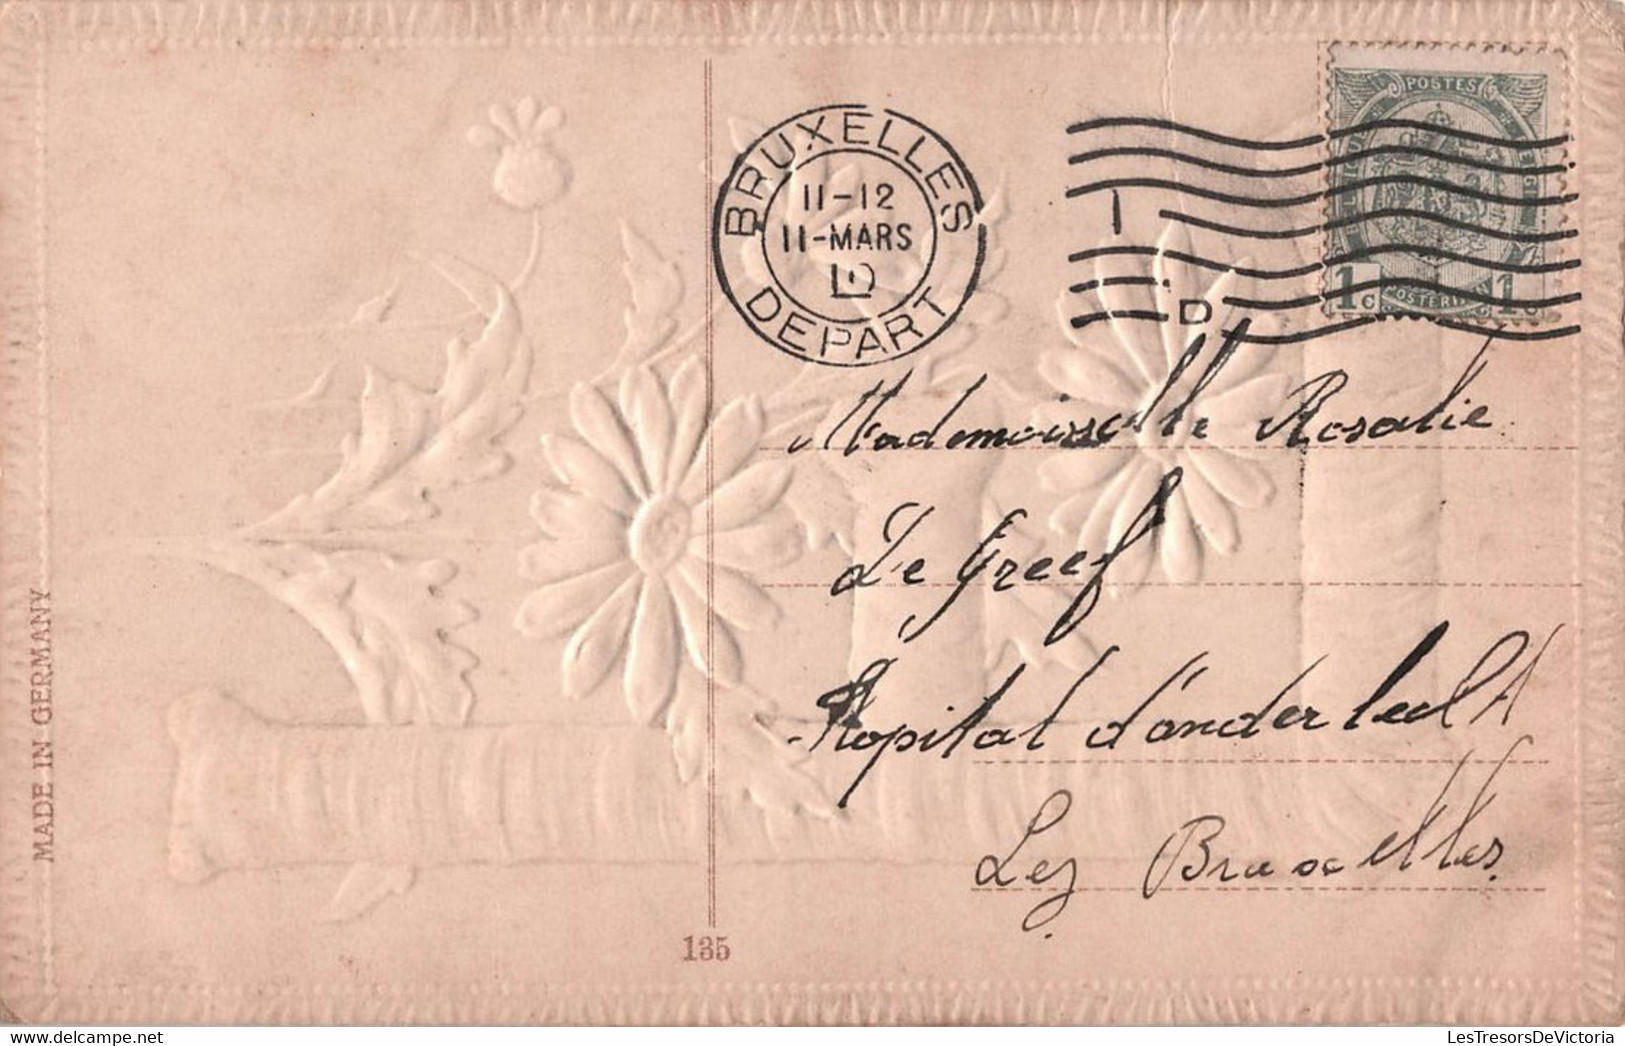 POSTES
BRUXELLES
11-12
11-MARS
10
DEPART
1
D
1c
1c
Mademoiselle Rosalie
De Greef
Hopital d'anderlecht
Lez Bruxelles.
MADE IN GERMANY
135
delcampe.net
LesTresorsDeVictoria